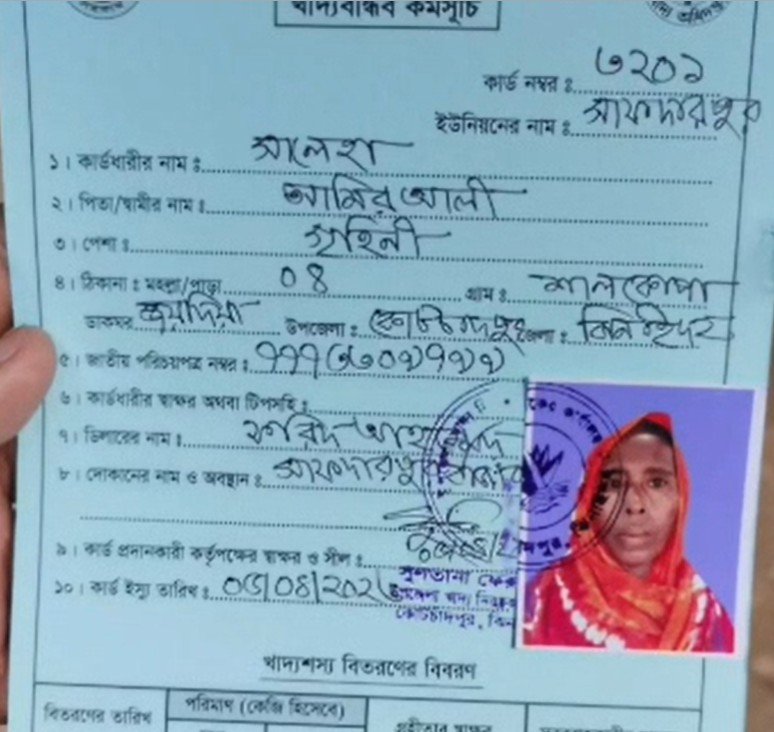 খাদ্যবান্ধব কর্মসূচি
কার্ড নম্বর ঃ ৩২০১
ইউনিয়নের নাম ঃ সাফদারপুর
১। কার্ডধারীর নাম ঃ সালেহা
২। পিতা/স্বামীর নাম ঃ আমির আলী
৩। পেশা ঃ গৃহিনী
৪। ঠিকানা ঃ মহল্লা/পাড়া ০৪ গ্রাম ঃ শালকোপা
ডাকঘর জয়াদিয়া উপজেলা ঃ কোটচাঁদপুর জেলা ঃ ঝিনাইদহ
৫। জাতীয় পরিচয়পত্র নম্বর ঃ
৬। কার্ডধারীর স্বাক্ষর অথবা টিপসহি ঃ
৭। ডিলারের নাম ঃ ফরিদ আহাম্মদ
৮। দোকানের নাম ও অবস্থান ঃ সাফদারপুর বাজার
৯। কার্ড প্রদানকারী কর্তৃপক্ষের স্বাক্ষর ও সীল ঃ
সুলতানা
১০। কার্ড ইস্যু তারিখ ঃ
উপজেলা খাদ্য
কোটচাঁদপুর, ঝিন
খাদ্যশস্য বিতরণের বিবরণ
বিতরণের তারিখ পরিমাণ (কেজি হিসেবে)